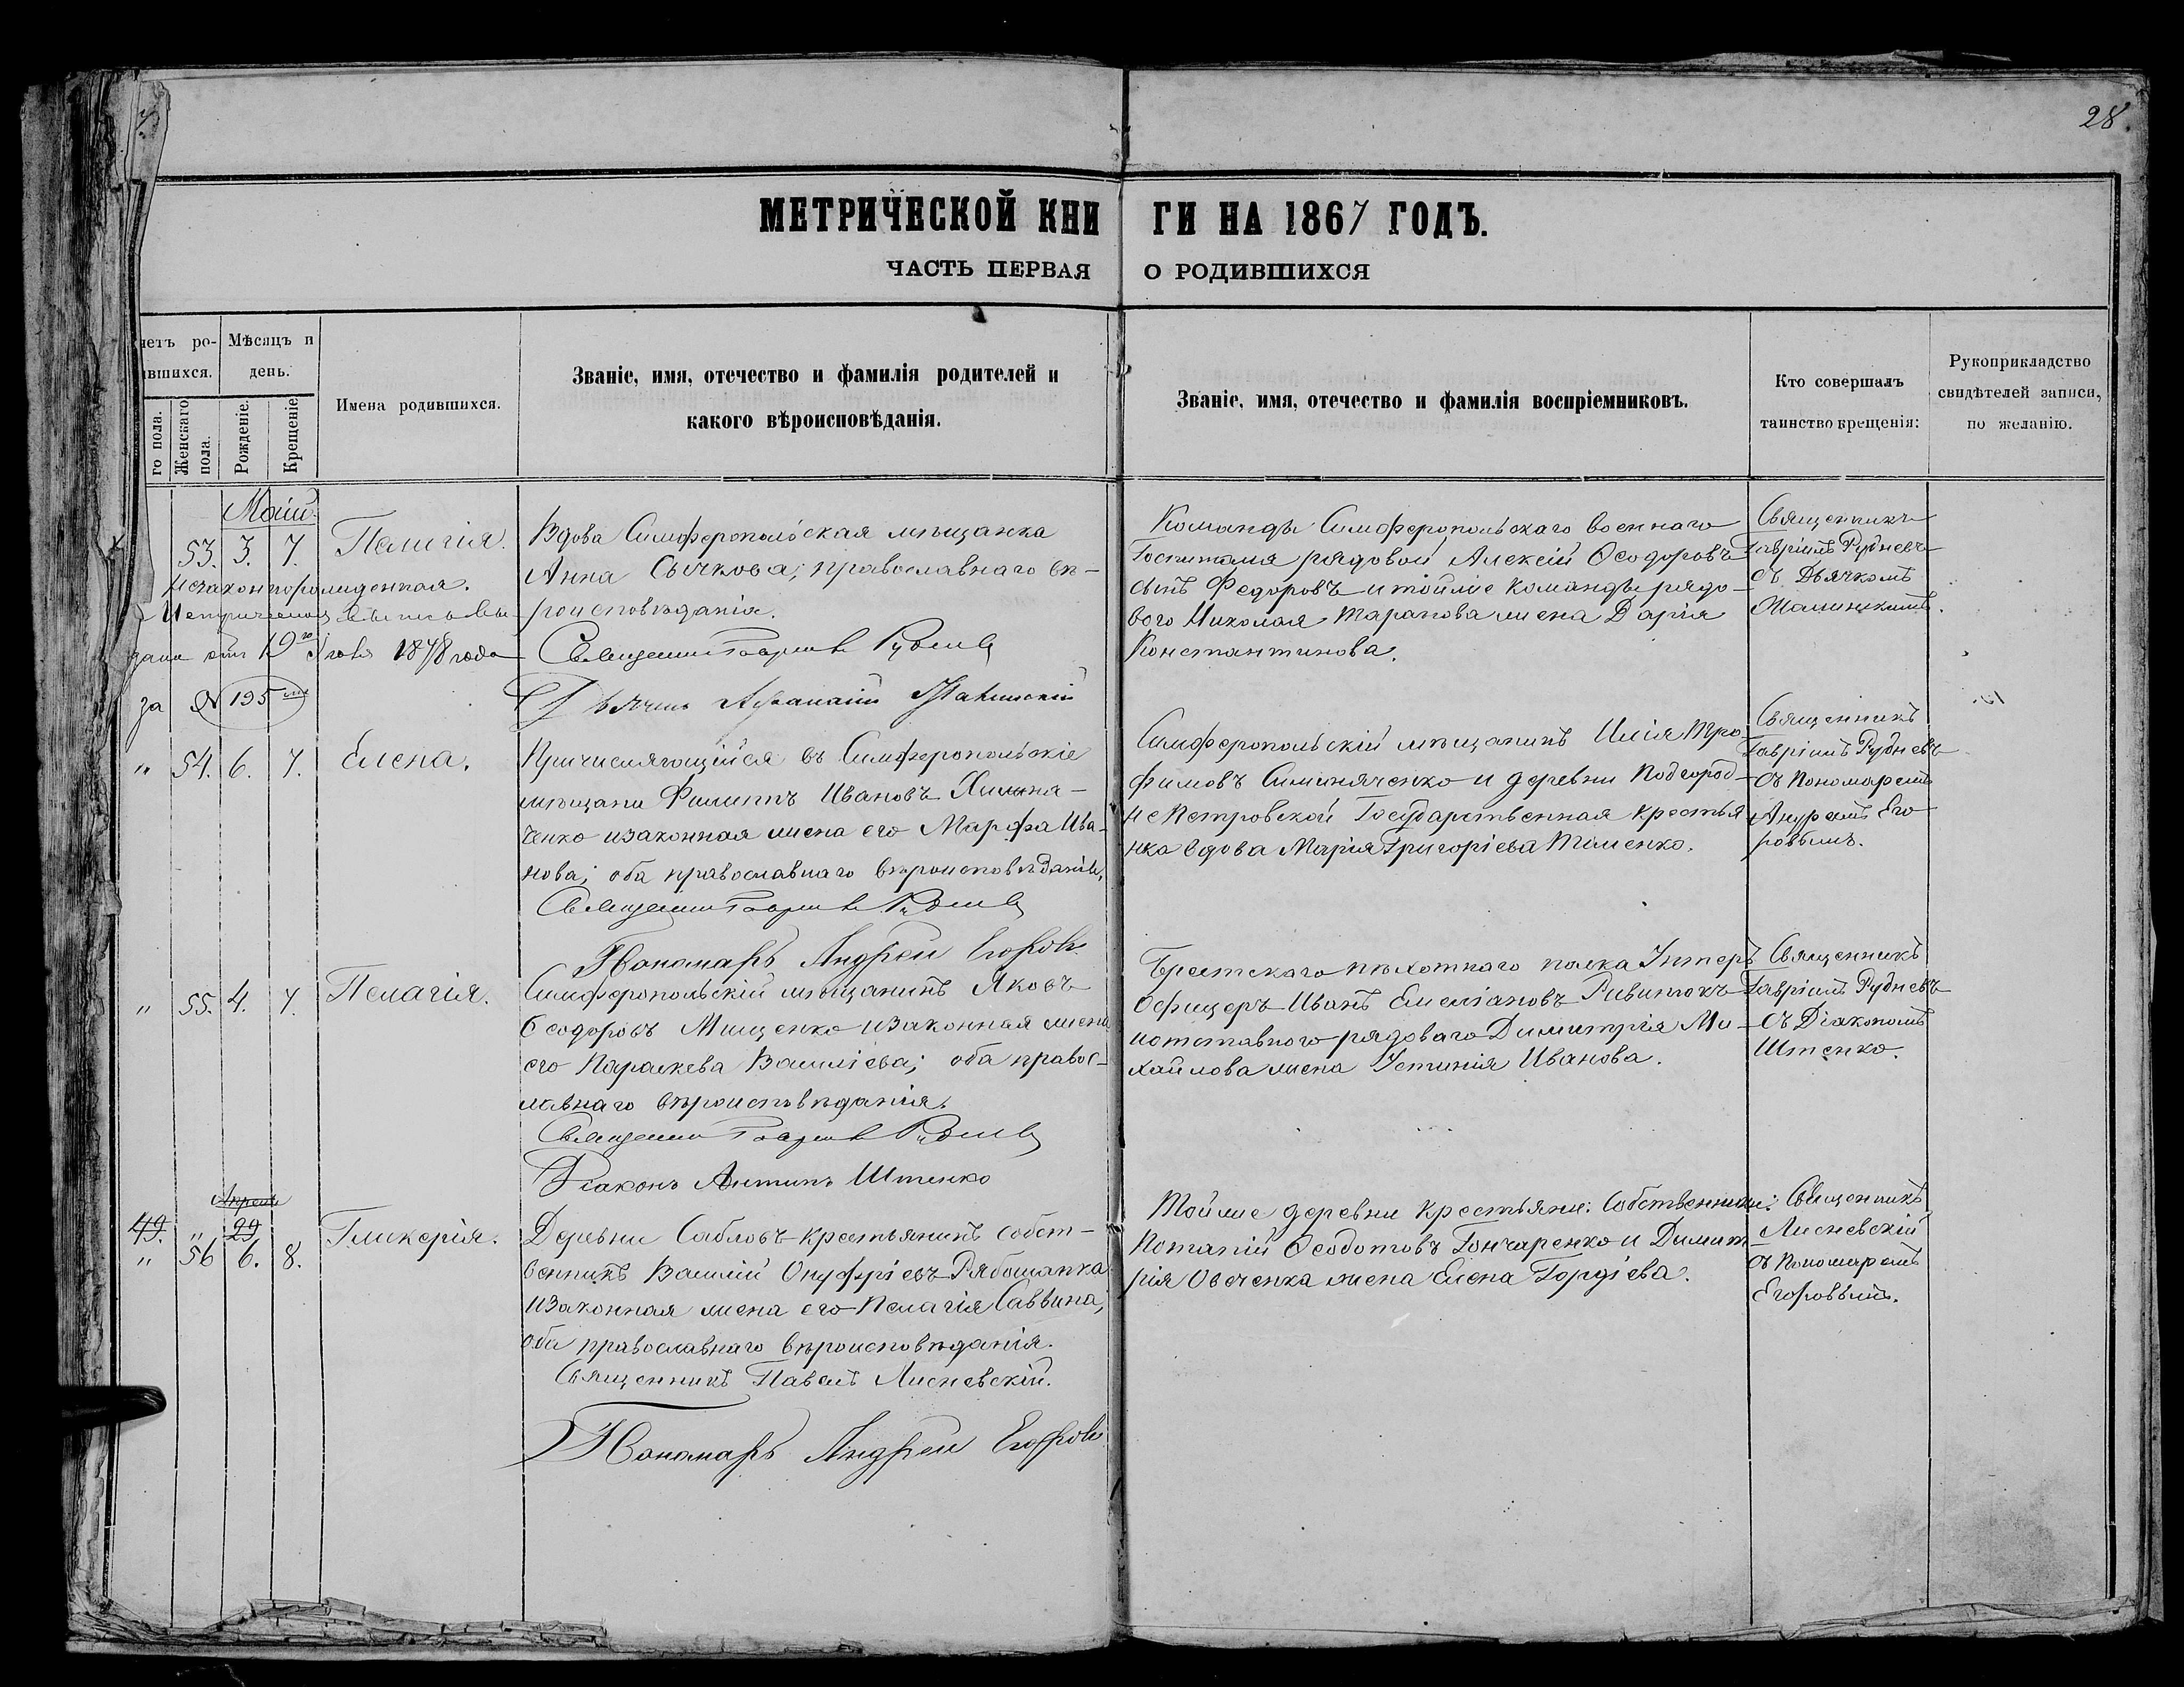 28
МЕТРИЧЕСКОЙ КНИ ГИ НА 1867 ГОДЪ.
ЧАСТЬ ПЕРВАЯ О РОДИВШИХСЯ
четъ ро-
ившихся.
го пола.
Женскаго пола.
Мѣсяцъ и
день.
Рожденіе.
Крещеніе
Имена родившихся.
Званіе, имя, отечество и фамилія родителей и
какого вѣроисповѣданія.
Званіе, имя, отечество и фамилія воспріемниковъ.
Кто совершалъ
таинство крещенія:
Рукоприкладство
свидѣтелей записи,
по желанію.
Маій
53. 3. 7. Пелагія.
Незаконнорожденная.
дана отъ 19го 1878 года
за № 195
Вдова Симферопольская мѣщанка
Анна Сычкова; православнаго вѣ-
роисповѣданія.
Священникъ Гавріилъ Рудневъ
Дьячекъ Афанасій
Команды Симферопольскаго военнаго
Госпиталя рядовой Алексій Ѳеодоровъ
сынъ Федоровъ и тойже команды рядо-
вого Николая Таранова жена Дарія
Константинова.
Священникъ
Гавріилъ Рудневъ
съ Дьячкомъ
" 54. 6. 7. Елена.
Причисляющійся въ Симферопольскіе
мѣщани Филиппъ Ивановъ
ченко и законная жена его Марфа Ива-
нова; оба православнаго вѣроисповѣданія.
Священникъ Гавріилъ Рудневъ
Пономарь Андрей Егоровъ
Симферопольскій мѣщанинъ Илія Тро-
фимовъ Симиняченко и деревни Подгород-
не Петровской Государственная крестья
нка вдова Марія Григоріева Тименко.
Священникъ
Гавріилъ Рудневъ
съ Пономаремъ
Андреемъ Его
ровымъ.
" 55. 4. 7. Пелагія.
Симферопольскій мѣщанинъ Яковъ
Ѳеодоровъ Мищенко и законная жена
его Параскева Василіева; оба правос-
лавнаго вѣроисповѣданія.
Священникъ Гавріилъ Рудневъ
Діаконъ Антипъ Штенко
Брестскаго пѣхотнаго полка Унтеръ
Офицеръ Иванъ Емеліановъ
и отставного рядоваго Димитрія Ми-
хайлова жена Устинія Иванова.
Священникъ
Гавріилъ Рудневъ
съ Діакономъ
Штенко.
Апреля
49. " 29
" 56 6. 8. Гликерія.
Деревни Сабловъ крестьянинъ собст-
венникъ Василій Онуфріевъ Рябошапка
и законная жена его Пелагія Саввина;
оба православнаго вѣроисповѣданія.
Священникъ Павелъ Лисневскій.
Пономарь Андрей Егоровъ
Тойже деревни крестьяни: Собственники:
Потапій Ѳеодотовъ Гончаренко и Димит-
рія Овеченка жена Елена Гордіева.
Священникъ
Лисневскій
съ Пономаремъ
Егоровымъ.